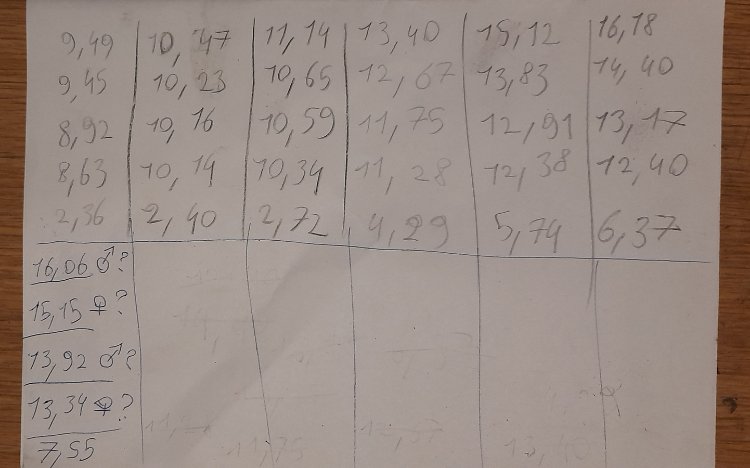 9,49 10,47 11,14 13,40 15,12 16,18
9,45 10,23 10,65 12,67 13,83 14,40
8,92 10,16 10,59 11,75 12,91 13,17
8,63 10,14 10,34 11,28 12,38 12,40
2,36 2,40 2,72 4,29 5,74 6,37
16,06 ♂?
15,15 ♀?
13,92 ♂?
13,34 ♀?
7,55